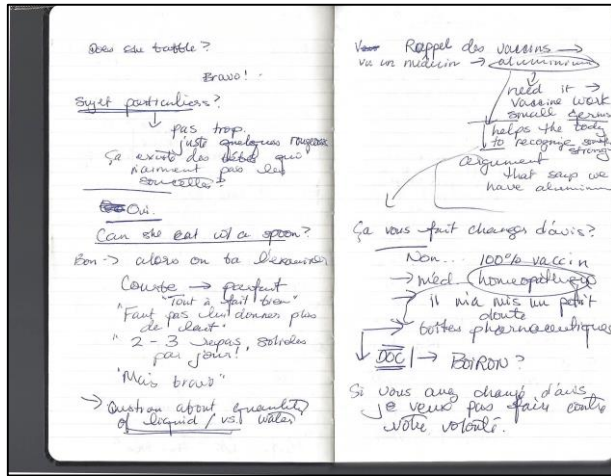 Does she babble?
Bravo!
Sujet particuliers?
pas trop.
juste quelques rougeurs
Ça existe des bébés qui
n'aiment pas les
Oui.
Can she eat w/ a spoon?
Bon → alors on va l'examiner
Courbe → parfait
"Tout à fait bien"
"Faut pas lui donner plus
de lait"
"2-3 repas solides
par jour!,
"Mais bravo"
→ Question about quantity
of liquid / vs. water
Rappel des vaccins →
vu un médecin → aluminium
need it →
vaccine work
small germs
helps the body
to recognize
argument
that says we
have aluminium
Ça vous fait changer d'avis?
Non... 100% vaccin
→ méd. homeopathique
→ il m'a mis un petit
doute
→ boîtes pharmaceutiques
DOC → BOIRON?
Si vous avez changé d'avis
je veux pas faire contre
votre volonté.